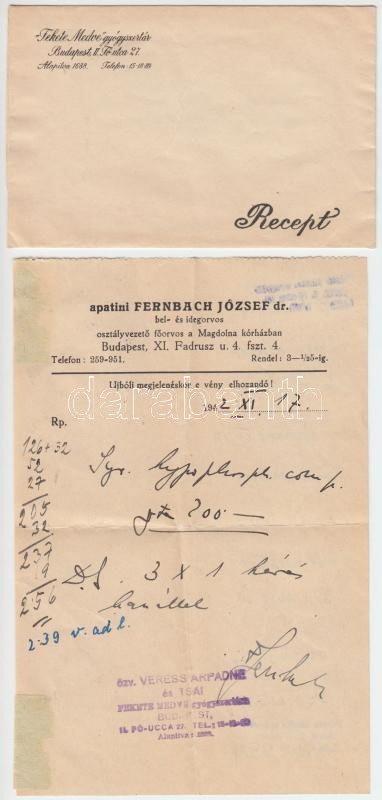 "Fekete Medve" gyógyszertár
Budapest, II. Fő-utca 27.
Alapítva 1688. Telefon: 15-18-89
Recept
apatini FERNBACH JÓZSEF dr.
bel- és idegorvos
osztályvezető főorvos a Magdolna kórházban
Budapest, XI. Fadrusz u. 4. fszt. 4.
Telefon: 259-951. Rendel: 3—½5-ig.
Ujbóli megjelenéskor e vény elhozandó!
194 2 XI. 17.
Rp.
126 + 32
52
27
205
32
237
19
256
Syr. hypophosph. comp.
200 —
D.S. 3 X 1 kávés
kanállal
2.39 v. adl.
özv. VERESS ÁRPÁDNÉ
és TSAI
FEKETE MEDVE gyógyszertár
BUDAPEST,
II. FŐ-UCCA 27. TEL.:
Alapítva:
darabanth